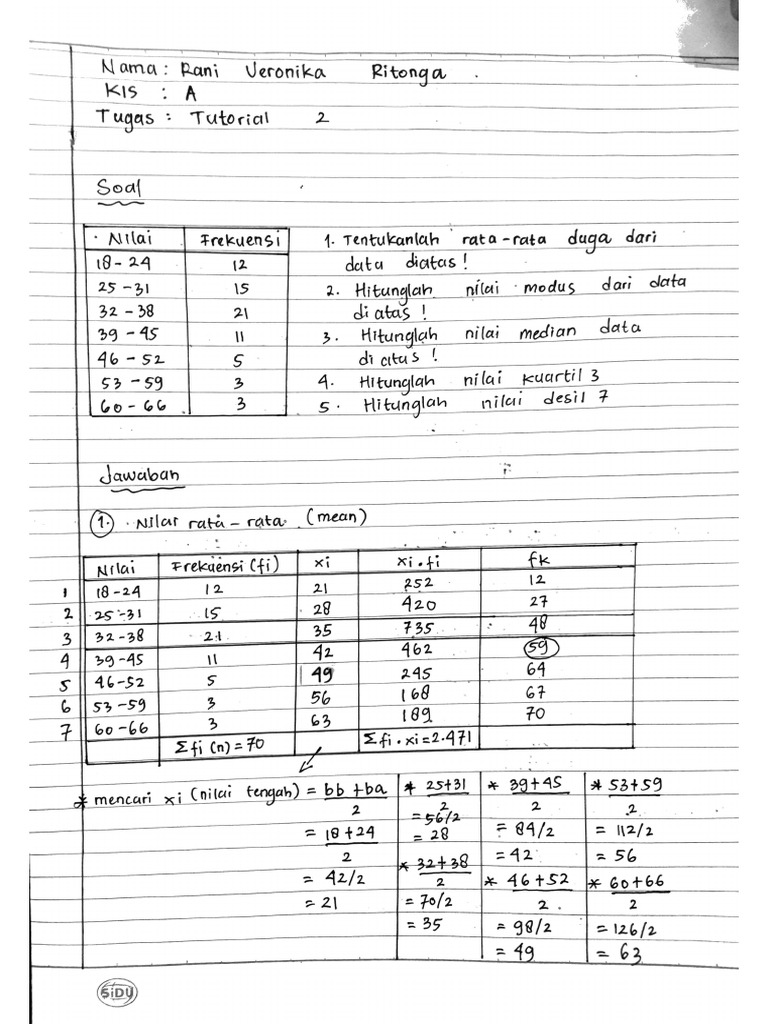 Nama : Rani Veronika Ritonga .
Kls : A
Tugas : Tutorial 2
Soal
Nilai | Frekuensi
18 - 24 | 12
25 - 31 | 15
32 - 38 | 21
39 - 45 | 11
46 - 52 | 5
53 - 59 | 3
60 - 66 | 3
1. Tentukanlah rata-rata duga dari
data diatas !
2. Hitunglah nilai modus dari data
di atas !
3. Hitunglah nilai median data
di atas !
4. Hitunglah nilai kuartil 3
5. Hitunglah nilai desil 7
Jawaban
1. Nilai rata-rata (mean)
Nilai | Frekuensi (fi) | xi | xi . fi | fk
1 | 18-24 | 12 | 21 | 252 | 12
2 | 25-31 | 15 | 28 | 420 | 27
3 | 32-38 | 21 | 35 | 735 | 48
4 | 39-45 | 11 | 42 | 462 | 59
5 | 46-52 | 5 | 49 | 245 | 64
6 | 53-59 | 3 | 56 | 168 | 67
7 | 60-66 | 3 | 63 | 189 | 70
Σfi (n) = 70 | Σfi . xi = 2.471
* mencari xi (nilai tengah) = bb + ba
2
= 18 + 24
2
= 42/2
= 21
* 25+31
2
= 56/2
= 28
* 32+38
2
= 70/2
= 35
* 39+45
2
= 84/2
= 42
* 46+52
2
= 98/2
= 49
* 53+59
2
= 112/2
= 56
* 60+66
2
= 126/2
= 63
SiDU